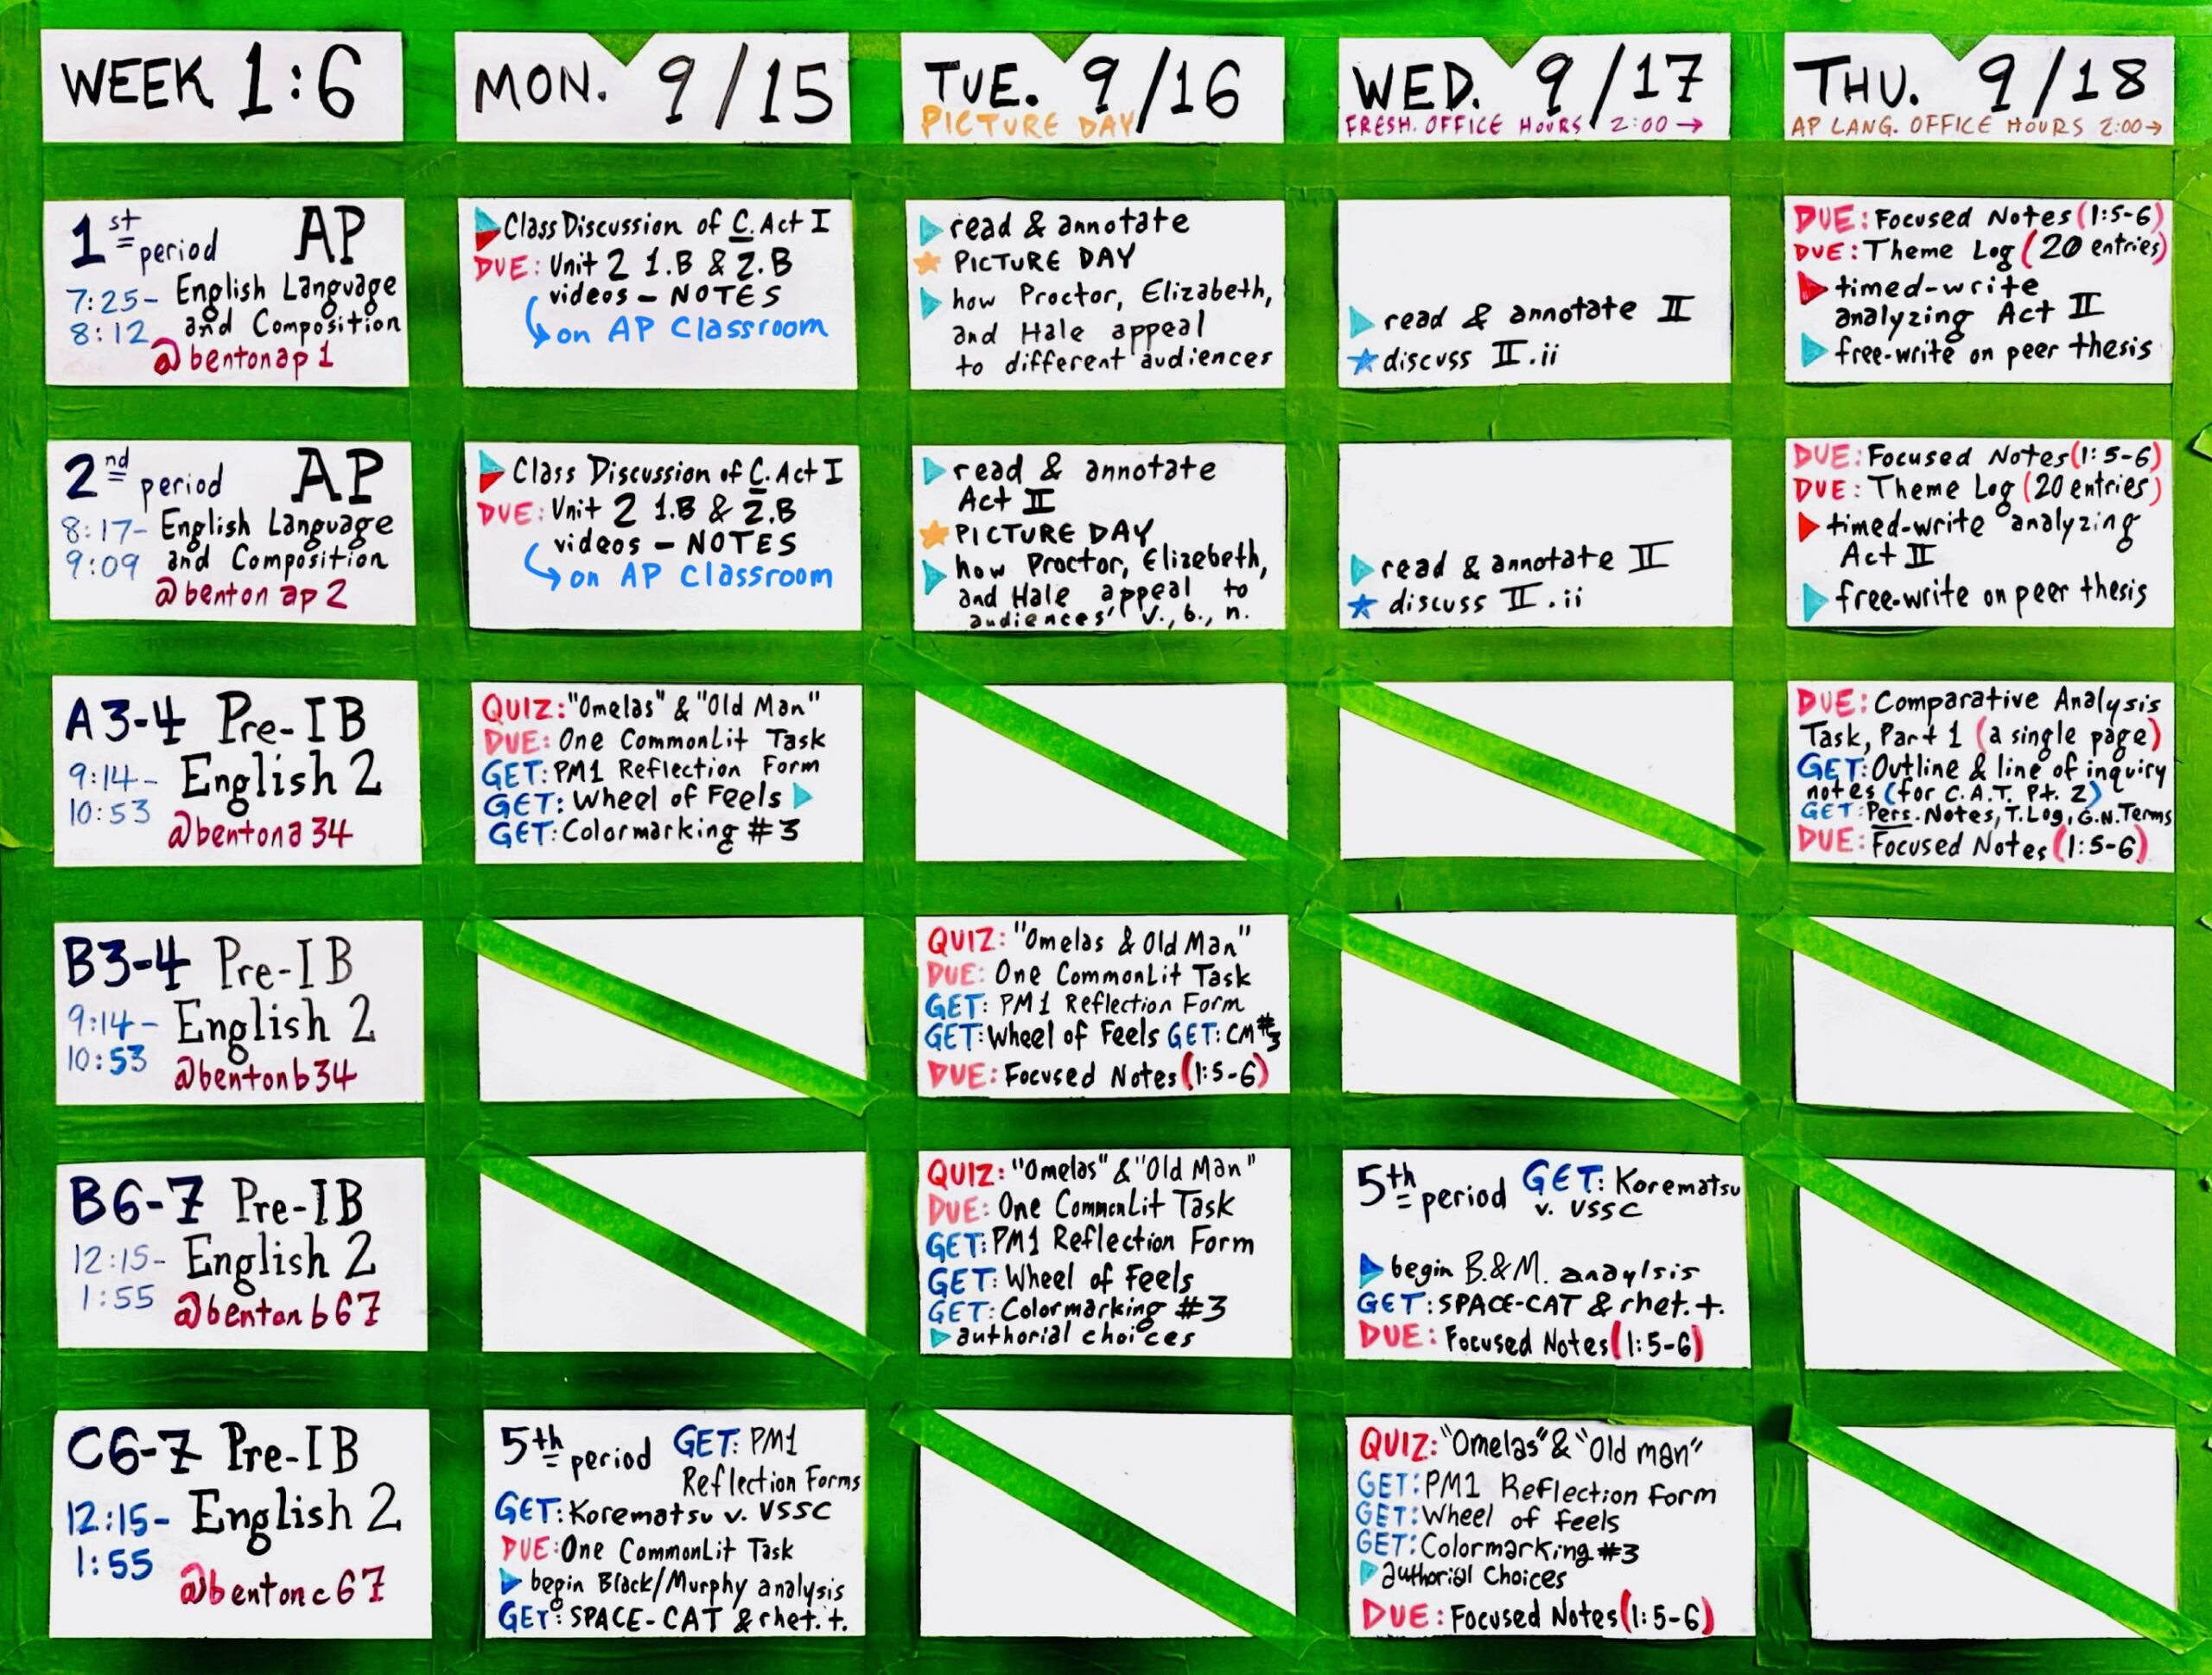 WEEK 1:6
MON. 9/15
TUE. 9/16
PICTURE DAY
WED. 9/17
FRESH. OFFICE HOURS 2:00 →
THU. 9/18
AP LANG. OFFICE HOURS 2:00→
1st period AP
7:25- English Language
8:12 and Composition
@bentonap1
Class Discussion of C. Act I
DUE: Unit 2 1.B & 2.B
videos - NOTES
on AP Classroom
read & annotate
PICTURE DAY
how Proctor, Elizabeth,
and Hale appeal
to different audiences
read & annotate II
discuss II.ii
DUE: Focused Notes (1:5-6)
DUE: Theme Log (20 entries)
timed-write
analyzing Act II
free-write on peer thesis
2nd period AP
8:17- English Language
9:09 and Composition
@bentonap2
Class Discussion of C. Act I
DUE: Unit 2 1.B & 2.B
videos - NOTES
on AP Classroom
read & annotate
Act II
PICTURE DAY
how Proctor, Elizebeth,
and Hale appeal to
audiences' v., b., n.
read & annotate II
discuss II.ii
DUE: Focused Notes (1:5-6)
DUE: Theme Log (20 entries)
timed-write analyzing
Act II
free-write on peer thesis
A3-4 Pre-IB
9:14- English 2
10:53
@bentona34
QUIZ: "Omelas" & "Old Man"
DUE: One CommonLit Task
GET: PM1 Reflection Form
GET: Wheel of Feels
GET: Colormarking #3
DUE: Comparative Analysis
Task, Part 1 (a single page)
GET: Outline & line of inquiry
notes (for C.A.T. Pt. 2)
GET: Pers. Notes, T.Log, G.N.Terms
DUE: Focused Notes (1:5-6)
B3-4 Pre-IB
9:14- English 2
10:53
@bentonb34
QUIZ: "Omelas & Old Man"
DUE: One CommonLit Task
GET: PM1 Reflection Form
GET: Wheel of Feels GET: CM #3
DUE: Focused Notes (1:5-6)
B6-7 Pre-IB
12:15- English 2
1:55
@bentonb67
QUIZ: "Omelas" & "Old Man"
DUE: One CommonLit Task
GET: PM1 Reflection Form
GET: Wheel of Feels
GET: Colormarking #3
authorial choices
5th period GET: Korematsu
v. USSC
begin B.&M. anaylsis
GET: SPACE-CAT & rhet. t.
DUE: Focused Notes (1:5-6)
C6-7 Pre-IB
12:15- English 2
1:55
@bentonc67
5th period GET: PM1
Reflection Forms
GET: Korematsu v. USSC
DUE: One CommonLit Task
begin Black/Murphy analysis
GET: SPACE-CAT & rhet. t.
QUIZ: "Omelas" & "Old man"
GET: PM1 Reflection Form
GET: Wheel of feels
GET: Colormarking #3
authorial Choices
DUE: Focused Notes (1:5-6)